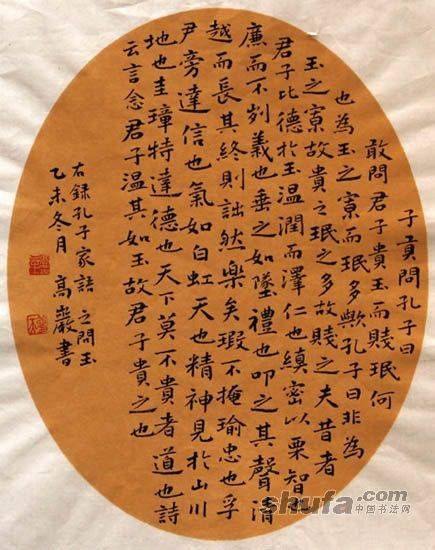 子貢問孔子曰
敢問君子貴玉而賤珉何
也為玉之寡而珉多歟孔子曰非為
玉之寡故貴之珉之多故賤之夫昔者
君子比德於玉溫潤而澤仁也縝密以栗智也
廉而不劌義也垂之如墜禮也叩之其聲清
越而長其終則詘然樂矣瑕不掩瑜忠也孚
尹旁達信也氣如白虹天也精神見於山川
地也圭璋特達德也天下莫不貴者道也詩
云言念君子溫其如玉故君子貴之也
右錄孔子家語之問玉
乙未冬月 高巖書
shufa.com
中国书法网